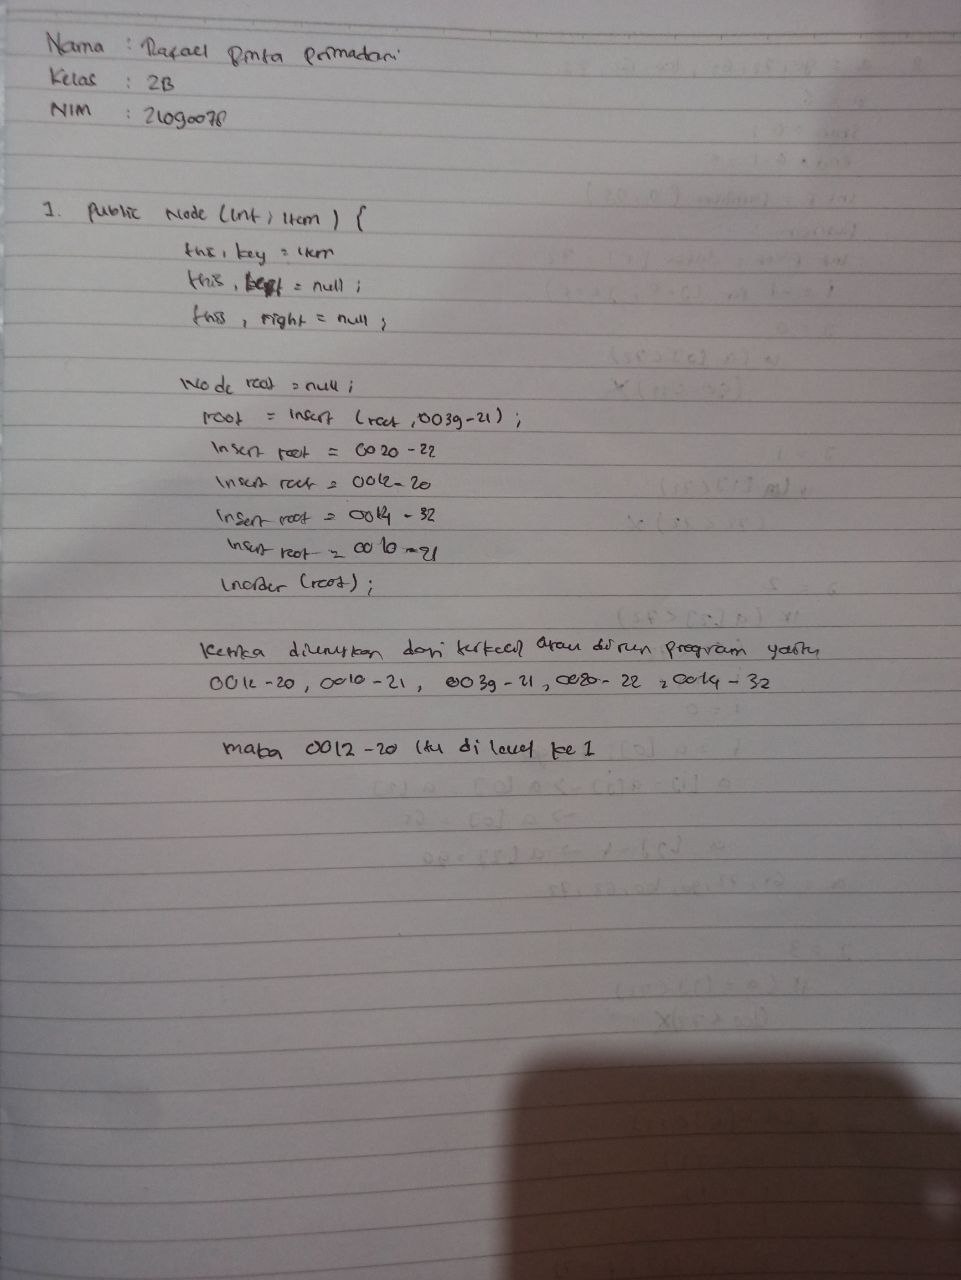 Nama : Rafael Primadani
Kelas : 2B
NIM : 21090078
1. Public Node (Int, Item) {
this, key = item
this, = null ;
this, right = null ;
Node root = null ;
root = Insert (root, 0039-21) ;
Insert root = 0020-22
Insert root = 0012-20
Insert root = 0014-32
Insert root = 0010-21
Inorder (root) ;
Ketika diurutkan dari terkecil atau dirun program yaitu
0012-20, 0010-21, 0039-21, 0020-22, 0014-32
maka 0012-20 itu di level ke 1